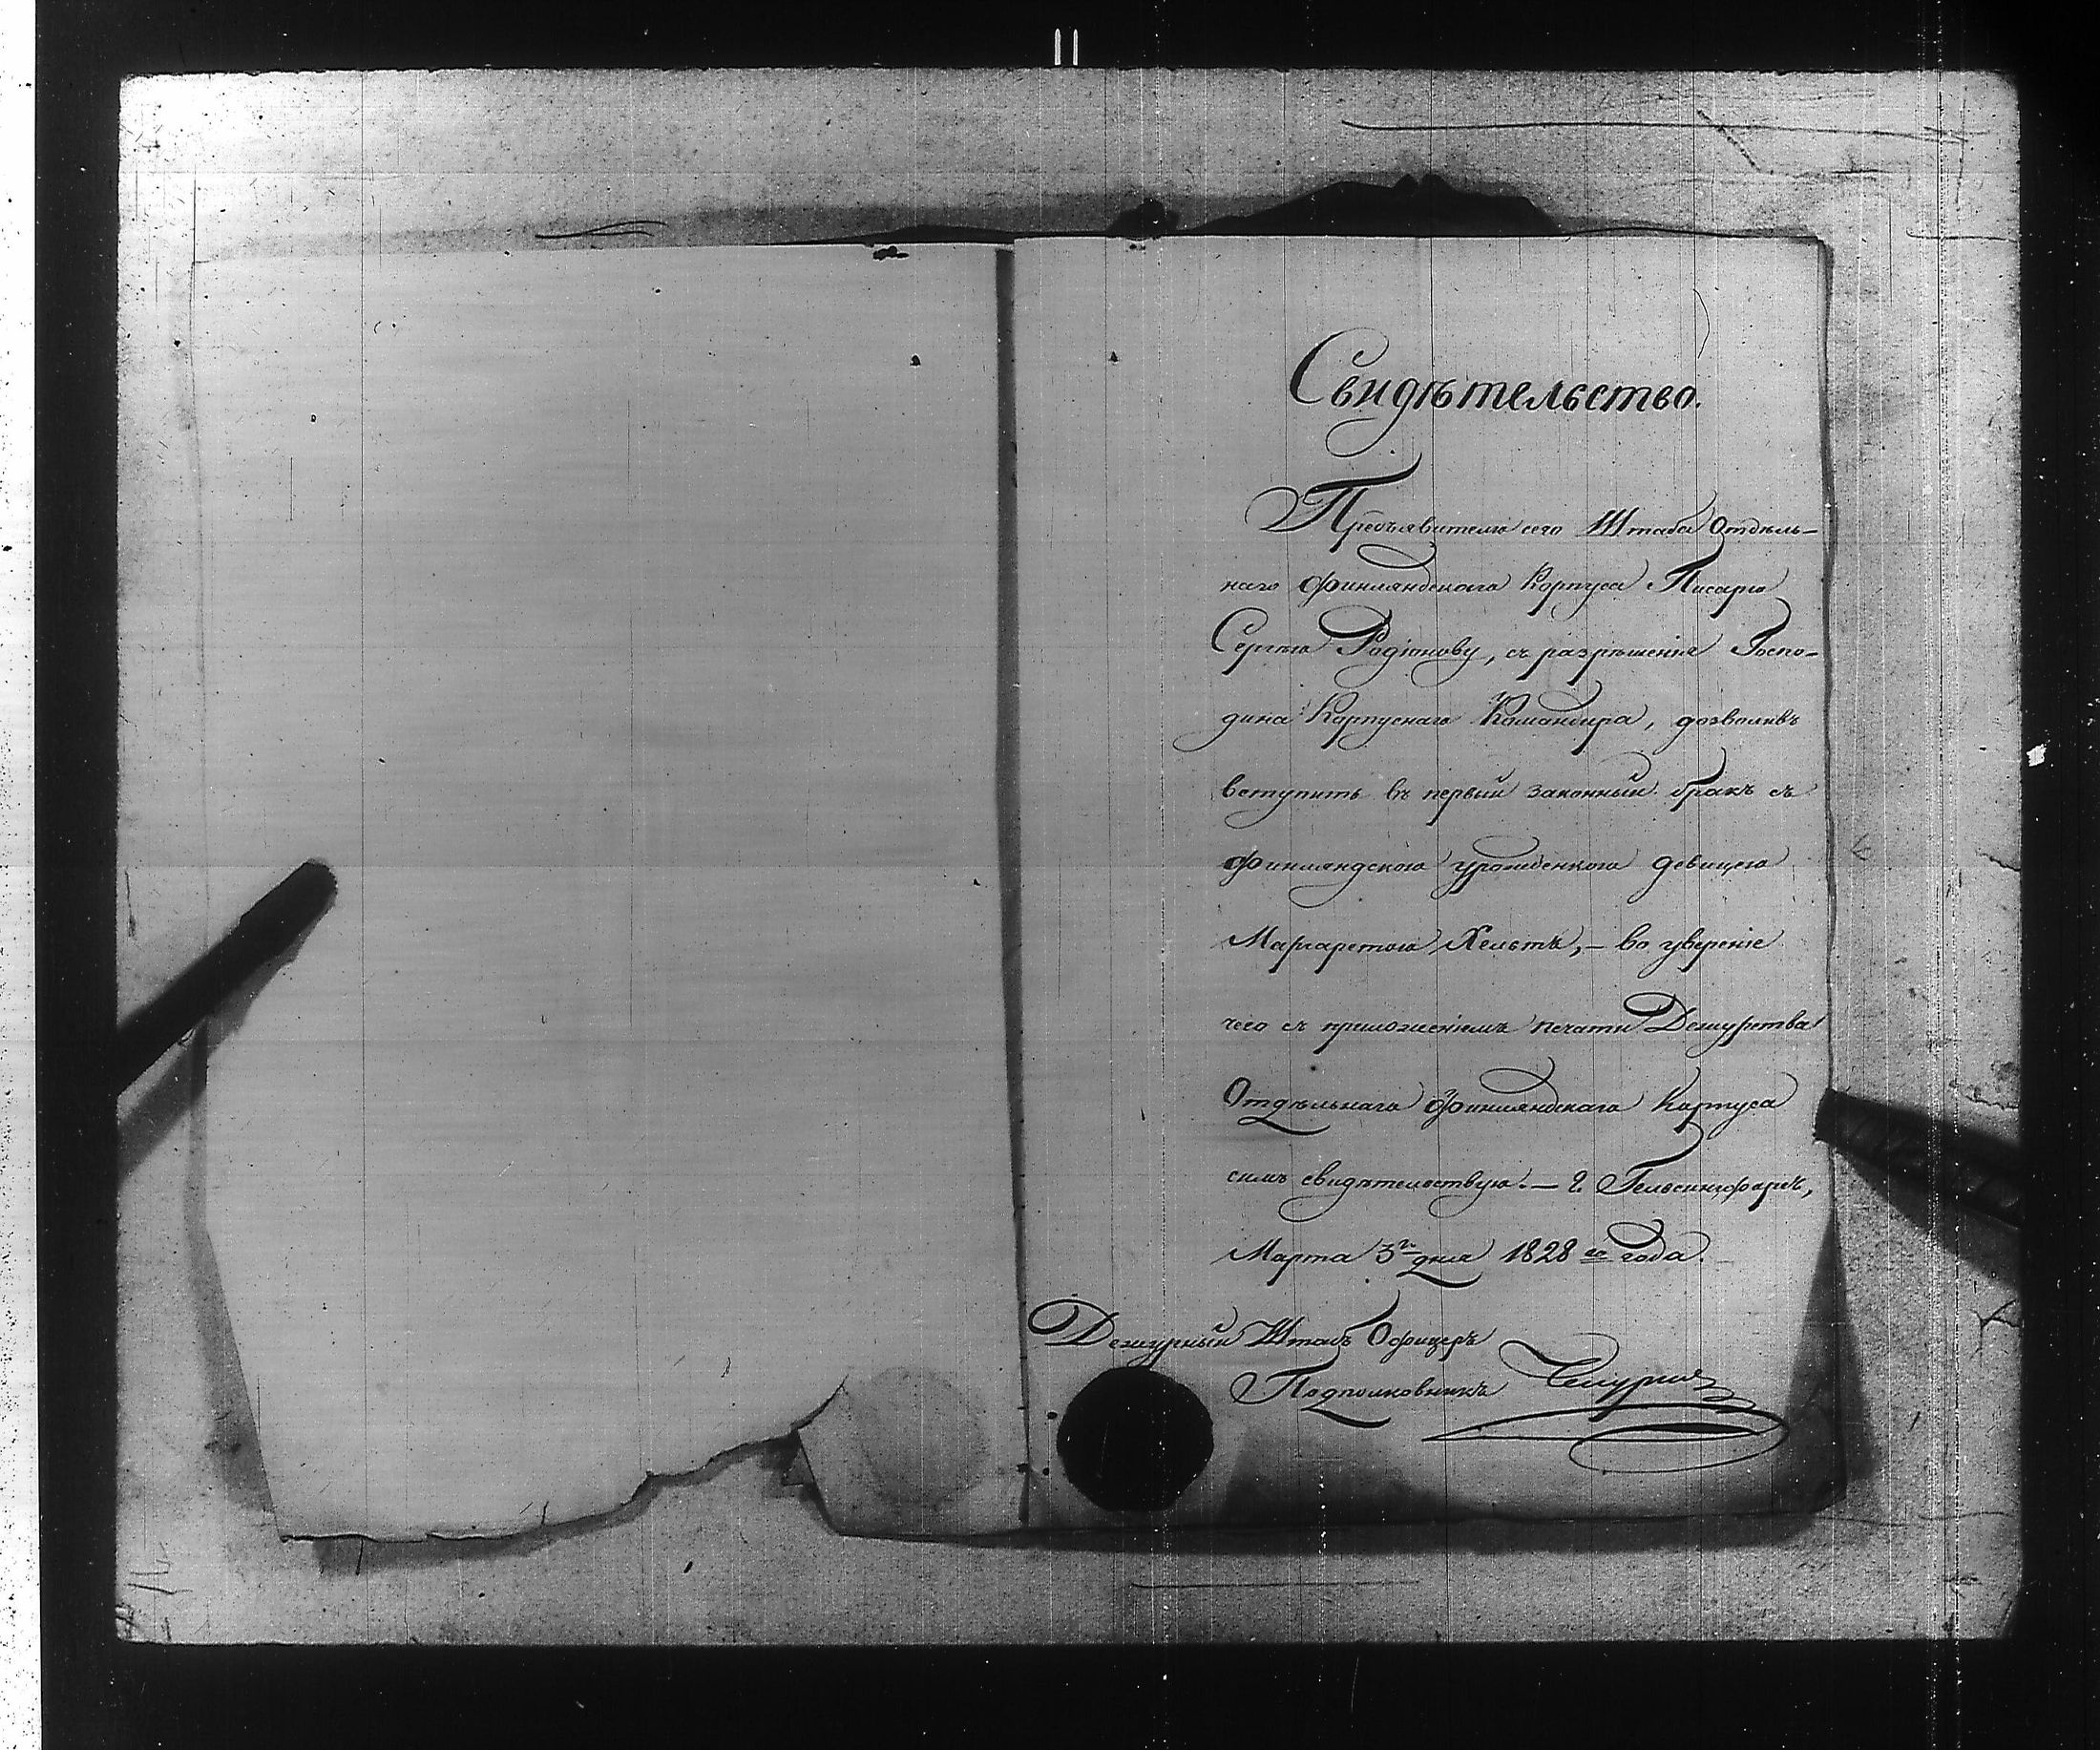 Свидѣтельство.
Предъявителю сего Штаба Отдѣль-
наго Финляндскаго Корпуса Писарю
Сергѣю Родіонову, съ разрѣшенія Госпо-
дина Корпуснаго Командира, дозволивъ
вступить въ первый законный бракъ съ
Финляндскою уроженкою девицею
Маргаретою Хельтъ, – во уверенiе
чего съ приложенiемъ печати Дежурства
Отдѣльнаго Финляндскаго Корпуса
симъ свидѣтельствую. – Г. Гельсингфорсъ,
Марта 3го дня 1828го года.
Дежурный Штабъ Офицеръ
Подполковникъ